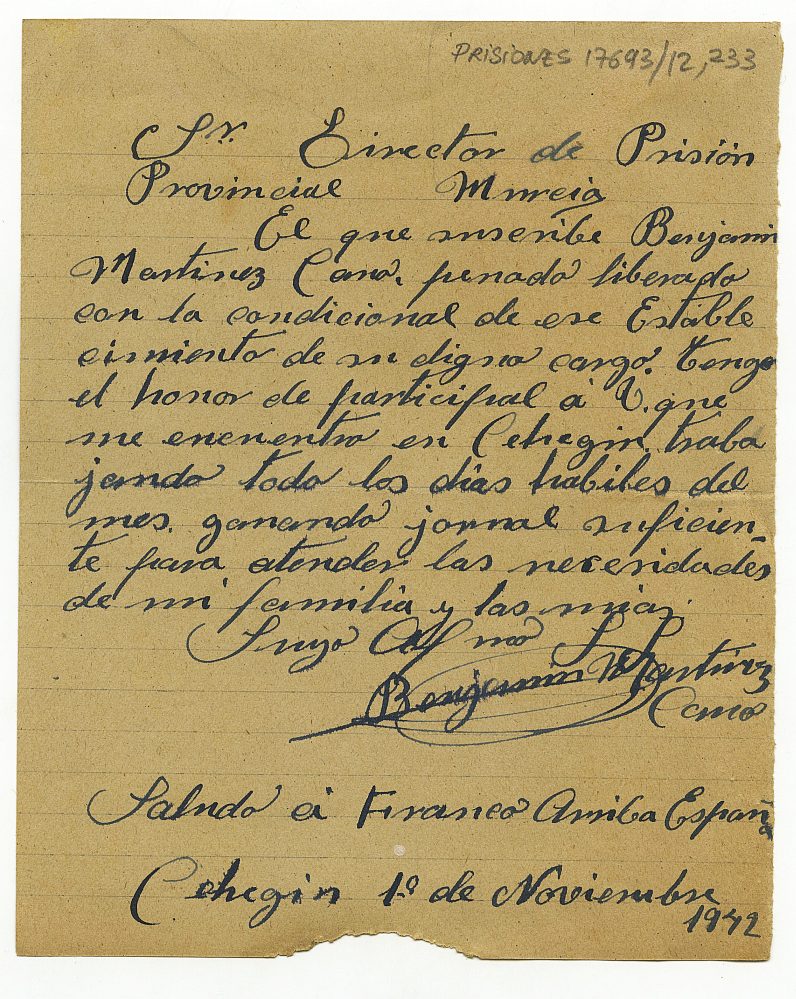 PRISIONES 17693/12,233
Sr. Director de Prisión
Provincial Murcia
El que suscribe Benjamin
Martinez Cano, penado liberado
con la condicional de ese Estable
cimiento de su digno cargo. Tengo
el honor de participal a V. que
me encuentro en Cehegin, traba
jando todo los dias habiles del
mes, ganando jornal suficien-
te para atender las necesidades
de mi familia y las mias.
Suyo Affmo S. S.
Benjamin Martinez
Cano
Saludo a Franco Arriba España
Cehegin 1º de Noviembre
1942